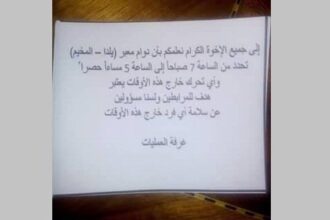 إلى جميع الإخوة الكرام نعلمكم بأن دوام معبر (يلدا – المخيم)
تحدد من الساعة 7 صباحاً إلى الساعة 5 مساءاً حصراً
وأي تحرك خارج هذه الأوقات يعتبر
هدف للمرابطين ولسنا مسؤولين
عن سلامة أي فرد خارج هذه الأوقات
غرفة العمليات